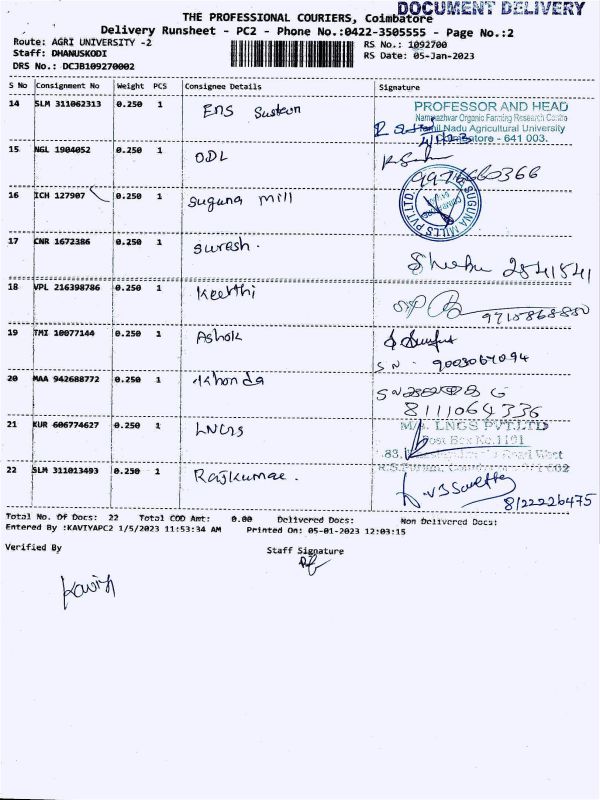 DOCUMENT DELIVERY
THE PROFESSIONAL COURIERS, Coimbatore
Delivery Runsheet - PC2 - Phone No.:0422-3505555 - Page No.:2
Route: AGRI UNIVERSITY -2
RS No.: 1092700
Staff: DHANUSKODI
RS Date: 05-Jan-2023
DRS No.: DCJB109270002
S No Consignment No Weight PCS Consignee Details Signature
14 SLM 311062313 0.250 1 Ens
PROFESSOR AND HEAD
Nammazhvar Organic Farming Research Centre
Tamil Nadu Agricultural University
Coimbatore - 641 003.
15 NGL 1904052 0.250 1 ODL
9976660366
16 ICH 127907 0.250 1 Suguna mill
SUGUNA MILLS PVT. LTD.
17 CNR 1672386 0.250 1 Suresh.
2541541
18 VPL 216398786 0.250 1 Keerthi
9715868850
19 TMI 10077144 0.250 1 Ashok
SN. 9003067094
20 MAA 942688772 0.250 1 Khonda
8111064336
21 KUR 606774627 0.250 1 LNGS
M/s. LNGS PVT.LTD
Post Box No.1101
22 SLM 311013493 0.250 1 Rajkumar.
8122226475
Total No. Of Docs: 22 Total COD Amt: 0.00 Delivered Docs: Non Delivered Docs:
Entered By :KAVIYAPC2 1/5/2023 11:53:34 AM Printed On: 05-01-2023 12:03:15
Verified By
Staff Signature